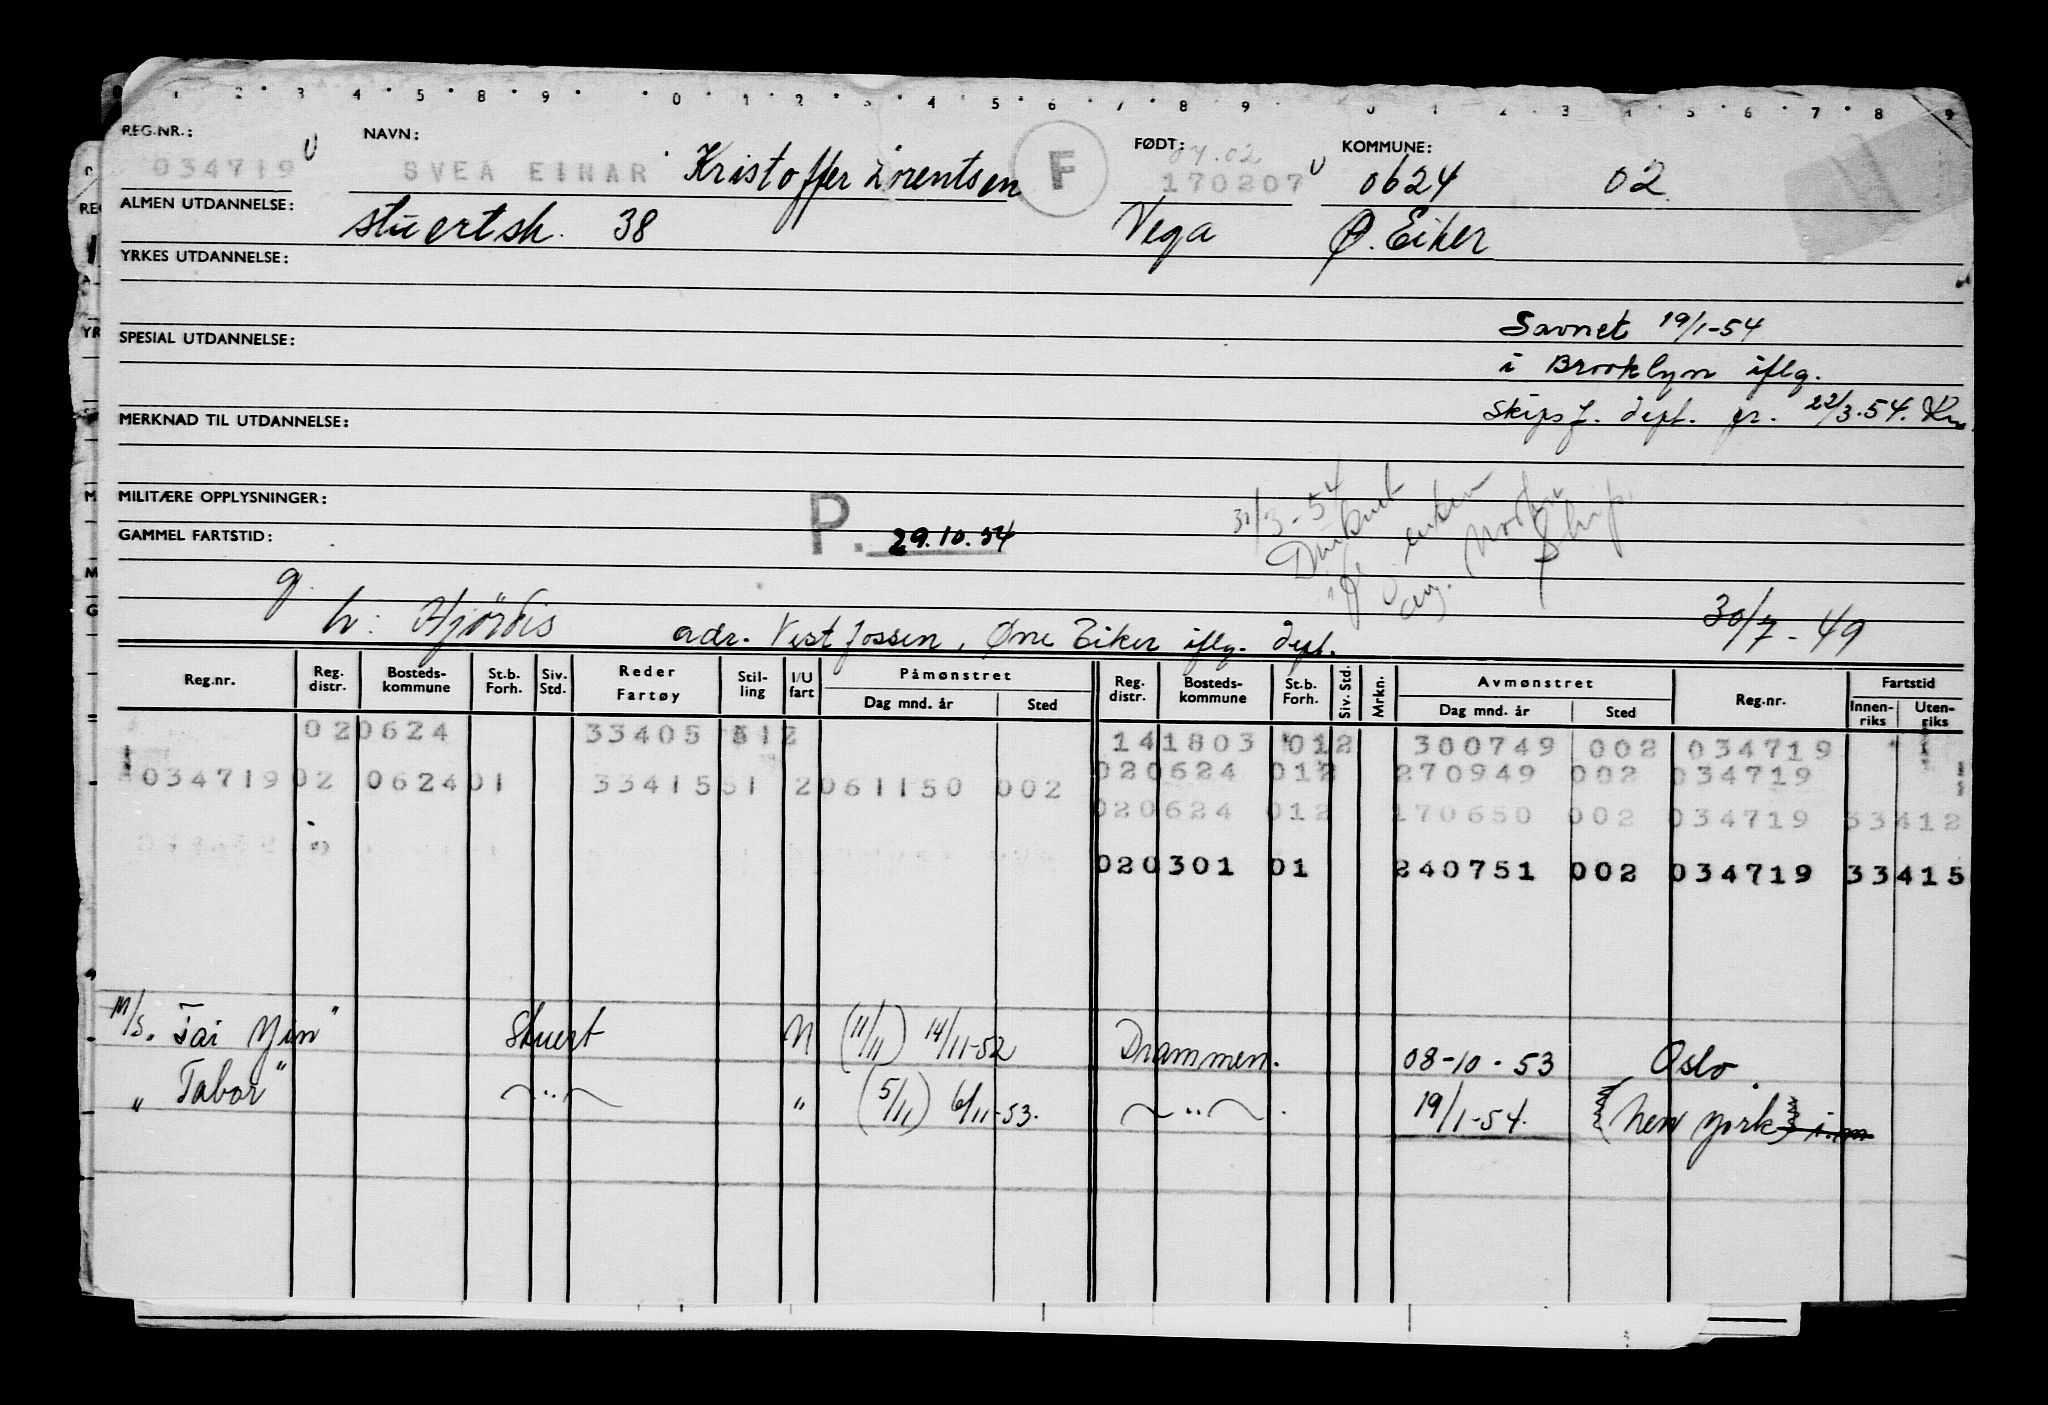 REG.NR.: NAVN: FØDT: KOMMUNE:
034719 U SVEA EINAR Kristoffer Lorentsen F 04.02 170207 U 0624 02
ALMEN UTDANNELSE: stuertsk. 38 Vega Ø. Eiker
YRKES UTDANNELSE:
Savnet 19/1-54
SPESIAL UTDANNELSE:
i Brooklyn iflg.
Skipsf. dept. 22/3.54.
MERKNAD TIL UTDANNELSE:
MILITÆRE OPPLYSNINGER:
P. 29.10.54
31/3-54
Druknet
GAMMEL FARTSTID:
g.
h: Hjördis adr. Vestfossen, Øvre Eiker iflg. dept. 30/7-49
Reg.nr. Reg. distr. Bosteds-kommune St.b. Forh. Siv. Std. Reder Fartøy Stil-ling I/U fart Påmønstret Dag mnd. år Sted Reg. distr. Bosteds-kommune St.b. Forh. Siv. Std. Mrkn. Avmønstret Dag mnd. år Sted Reg.nr. Fartstid Innen-riks Uten-riks
020624 33405 512 141803 012 300749 002 034719
034719 02 062401 33415 51 2061150 002 020624 012 270949 002 034719
020624 012 170650 002 034719 33412
020301 01 240751 002 034719 33415
M/S. Tai Yin" Stuert U (11/11) 14/11-52 Drammen. 08-10-53 Oslo.
" Tabor" " " (5/11) 6/11-53. " 19/1-54. (New York)